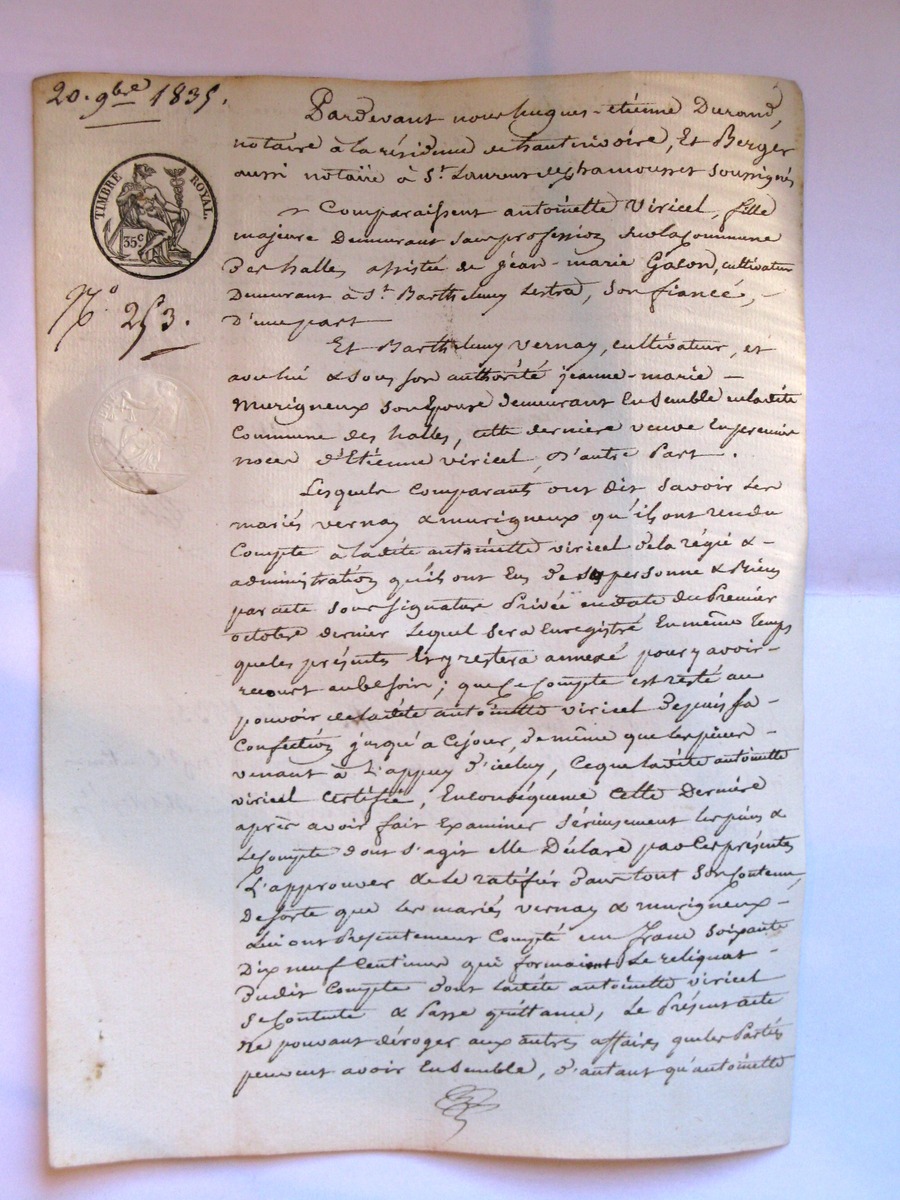 20. 9bre 1835.
TIMBRE ROYAL.
35c
N.° 253.
Pardevant nous hugues-étienne Durand,
notaire à la résidence de hauterivoire, Et Berger
aussi notaire à St. Laurent de chamousset soussignés
Comparaissent antoinette Viricel, fille
majeure Demeurant sans profession sur la Commune
Des halles assistée de jéan-marie Gacon, cultivateur
Demeurant à St. Barthelemy Lestra, son fiancé, -
D'une part
Et Barthelemy vernay, cultivateur, et
avec lui & sous son authorité jeanne-marie -
Murigneux son Epouse demeurant Ensemble en ladite
Commune des halles, cette dernière veuve En première
noces d'Etienne viricel, D'autre Part.
Lesquels Comparants ont dit savoir Les
mariés vernay & murigneux qu'ils ont rendu
Compte à ladite antoinette viricel de la régie & -
administration qu'ils ont Eu de sa personne & Biens
par acte sous signature Privée en date du Premier
octobre dernier Lequel sera Enregistré En même Temps
que les présentes & y restera annexé pour y avoir -
recourt au besoin; que Ce Compte est resté au
pouvoir de ladite antoinette viricel Depuis sa -
Confection jusqu'à Ce jour, de même que les pièces -
venant à L'appuy d'iceluy, Ce que ladite antoinette
viricel Certifie, En conséquence Cette Dernière
après avoir fait Examiner sérieusement les pièces &
Le Compte dont s'agit elle Déclare par Les présentes
L'approuver & le ratifier dans tout son Contenu,
De sorte que Les mariés vernay & murigneux -
Lui ont Présentement Compté un franc soixante
Dix neuf Centimes qui formaient Le reliquat -
Dudit Compte dont ladite antoinette viricel
se Contente & Passe quittance, Le Présent acte
Ne pouvant déroger aux autres affaires que les Parties
peuvent avoir Ensemble, d'autant qu'antoinette